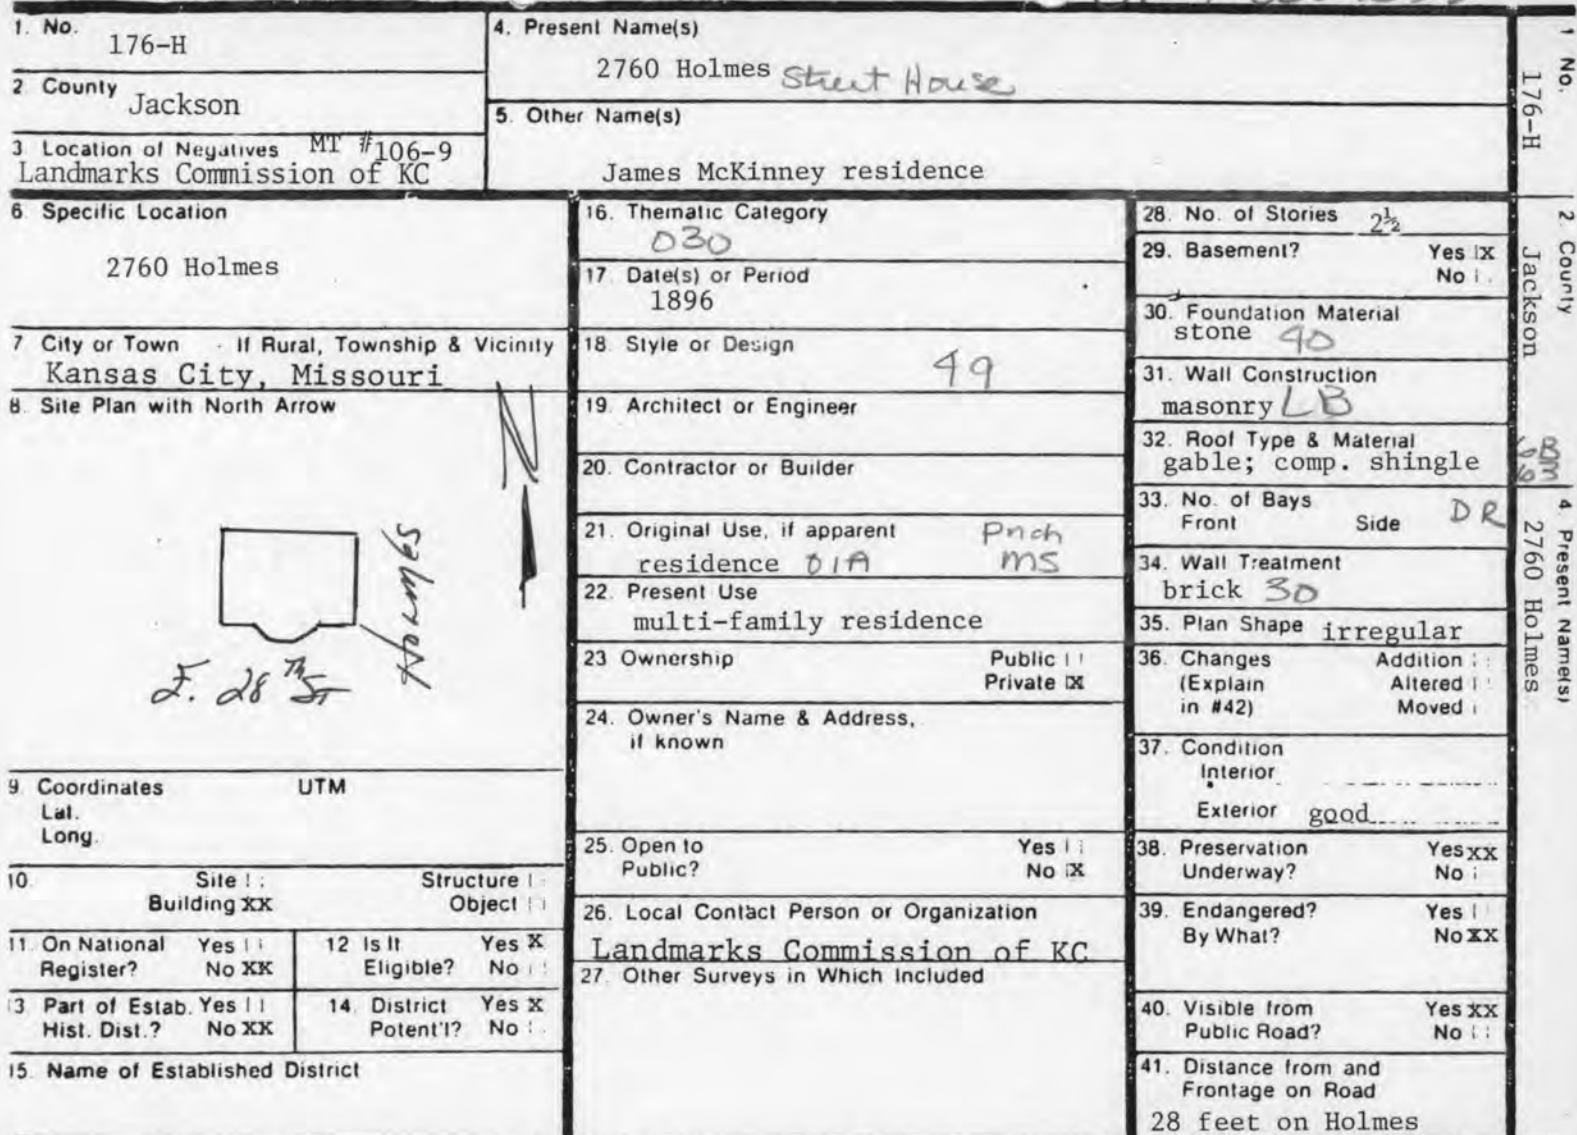 1. No.
176-H
2. County
Jackson
3 Location of Negatives MT #106-9
Landmarks Commission of KC
4. Present Name(s)
2760 Holmes Street House
5. Other Name(s)
James McKinney residence
6. Specific Location
2760 Holmes
7 City or Town If Rural, Township & Vicinity
Kansas City, Missouri
8. Site Plan with North Arrow
N
E. 28th St
9. Coordinates UTM
Lat.
Long.
10. Site Structure
Building XX Object
11. On National Yes
Register? No XX
12 Is It Yes X
Eligible? No
13 Part of Estab. Yes
Hist. Dist.? No XX
14. District Yes X
Potent'l? No
15. Name of Established District
16. Thematic Category
030
17. Date(s) or Period
1896
18. Style or Design
49
19. Architect or Engineer
20. Contractor or Builder
21. Original Use, if apparent Prch
residence 01A MS
22. Present Use
multi-family residence
23 Ownership Public
Private X
24. Owner's Name & Address,
if known
25. Open to Yes
Public? No X
26. Local Contact Person or Organization
Landmarks Commission of KC
27. Other Surveys in Which Included
28. No. of Stories 2½
29. Basement? Yes X
No
30. Foundation Material
stone 40
31. Wall Construction
masonry LB
32. Roof Type & Material
gable; comp. shingle
33. No. of Bays DR
Front Side
34. Wall Treatment
brick 30
35. Plan Shape irregular
36. Changes Addition
(Explain Altered
in #42) Moved
37. Condition
Interior
Exterior good
38. Preservation Yes XX
Underway? No
39. Endangered? Yes
By What? No XX
40. Visible from Yes XX
Public Road? No
41. Distance from and
Frontage on Road
28 feet on Holmes
1 No.
176-H
2. County
Jackson
4. Present Name(s)
2760 Holmes